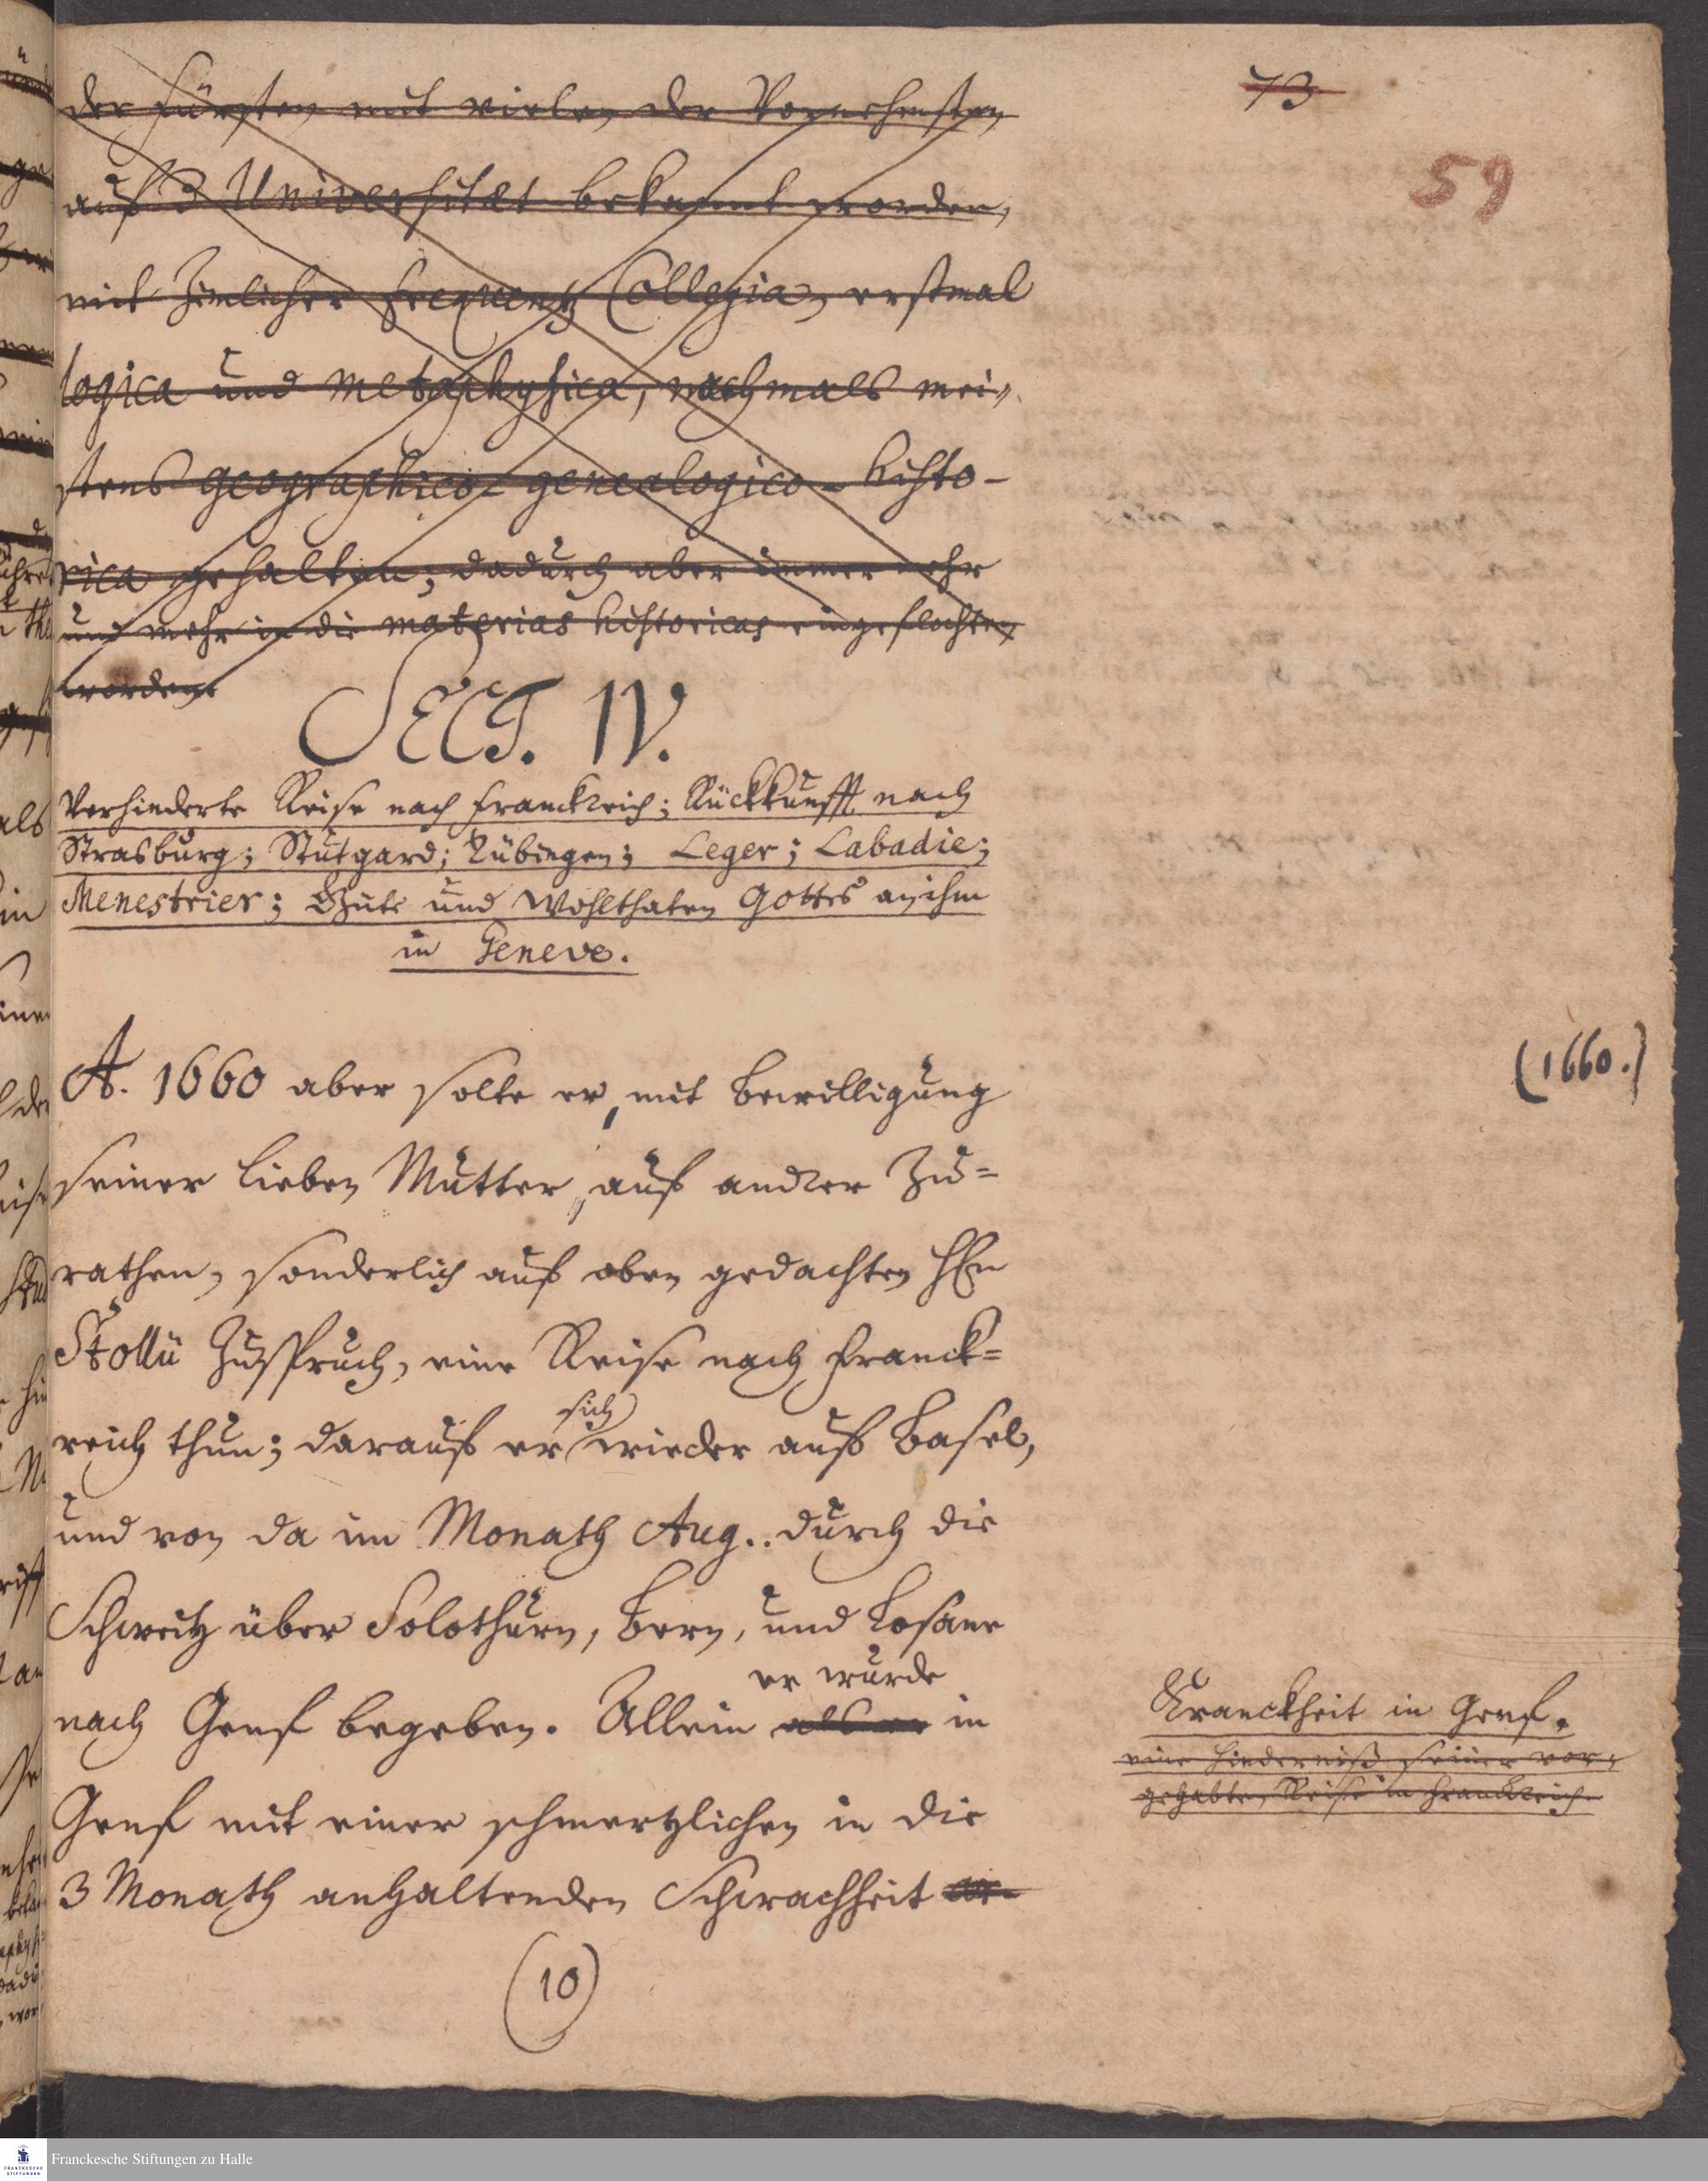 73
59
der Fürsten mit vielen der Vornehmsten
auf d Universitæt bekannt worden,
mit zimlicher frequentz Collegia, erstmal
logica und metaphysica, nachmals mei-
stens geographico- genealogico- histo-
rica gehalten; dadurch aber immer mehr
und mehr in die materias historicas eingeflochten
worden.
SECT. IV.
Verhinderte Reise nach Franckreich; Rückkunfft nach
Strasburg; Stutgard; Tübingen; Leger; Labadie;
Menestrier; Güte und Wohlthaten Gottes an ihm
in Geneve.
A. 1660 aber solte er, mit Bewilligung
(1660.)
seiner lieben Mutter, auf andrer Zu=
rathen, sonderlich auf oben gedachten HEn
Stollii Zuspruch, eine Reise nach Franck=
reich thun; darauf er sich wieder auf Basel,
und von da im Monath Aug.. durch die
Schweitz über Solothurn, Bern, und Losane
er wurde
nach Genf begeben. Allein als er in
Genf mit einer schmertzlichen in die
3 Monath anhaltenden Schwachheit
Kranckheit in Genf.
eine Hinderniß seiner vor-
gehabten Reise in Franckreich.
(10)
Franckesche Stiftungen zu Halle